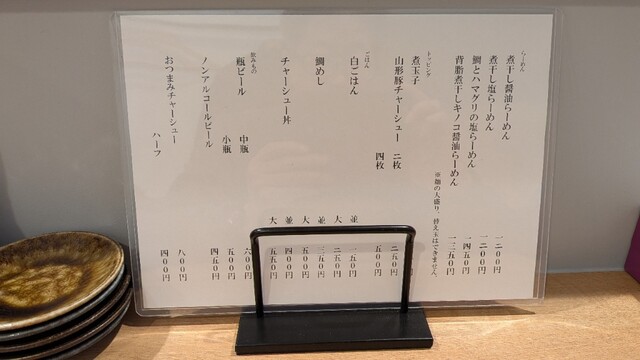 らーめん
煮干し醤油らーめん 一二〇〇円
煮干し塩らーめん 一二〇〇円
鯛とハマグリの塩らーめん 一四五〇円
背脂煮干しキノコ醤油らーめん 一三五〇円
※麺の大盛り、替え玉はできません。
トッピング
煮玉子
山形豚チャーシュー 二枚 二五〇円
四枚 五〇〇円
ごはん
白ごはん 並 一五〇円
大 二五〇円
鯛めし 並 三五〇円
大 五〇〇円
チャーシュー丼 並 四〇〇円
大 五五〇円
飲みもの
瓶ビール 中瓶 六〇〇円
小瓶 五〇〇円
ノンアルコールビール 四五〇円
おつまみチャーシュー 八〇〇円
ハーフ 四〇〇円